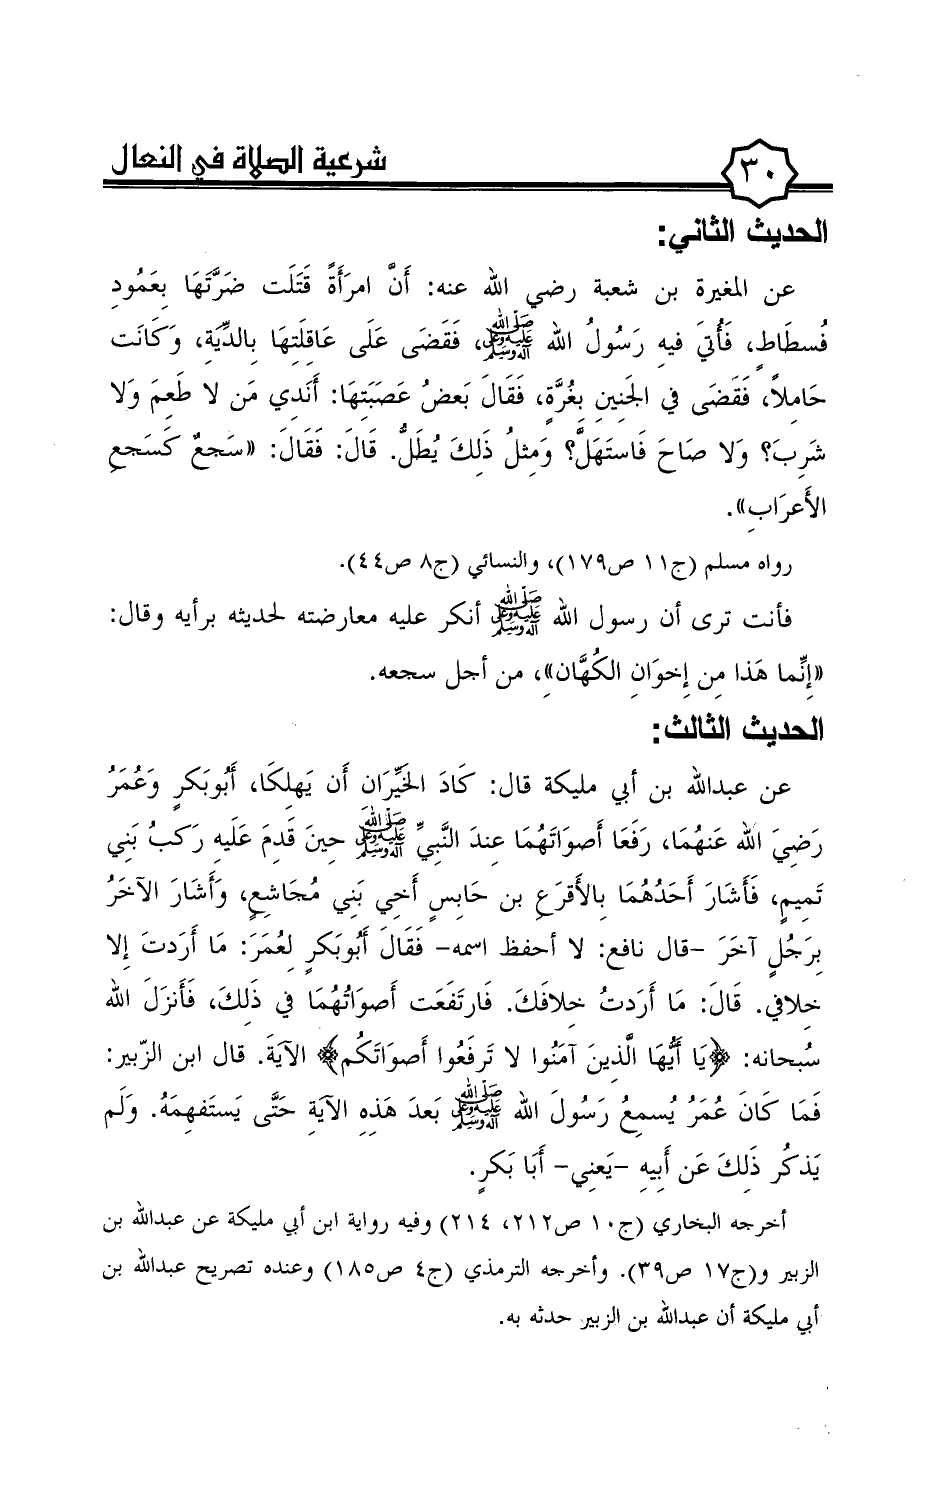 ٣٠ شرعية الصلاة في النعال
الحديث الثاني:
عن المغيرة بن شعبة رضي الله عنه: أَنَّ امرَأَةً قَتَلَت ضَرَّتَهَا بِعَمُودِ
فُسطَاطٍ، فَأُتيَ فيه رَسُولُ الله صلى الله عليه وآله وسلم، فَقَضَى عَلَى عَاقِلَتِهَا بالدِّيَةِ، وَكَانَت
حَاملاً، فَقَضَى في الجَنينِ بغُرَّةٍ، فَقَالَ بَعضُ عَصَبَتِهَا: أَنَدي مَن لا طَعِمَ وَلا
شَرِبَ؟ وَلا صَاحَ فَاستَهَلَّ؟ وَمثلُ ذَلِكَ يُطَلُّ. قَالَ: فَقَالَ: «سَجعٌ كَسَجعِ
الأَعرَابِ».
رواه مسلم (ج١١ ص١٧٩)، والنسائي (ج٨ ص٤٤).
فأنت ترى أن رسول الله صلى الله عليه وآله وسلم أنكر عليه معارضته لحديثه برأيه وقال:
«إِنَّما هَذَا مِن إِخوَانِ الكُهَّانِ»، من أجل سجعه.
الحديث الثالث:
عن عبدالله بن أبي مليكة قال: كَادَ الخَيِّرَانِ أَن يَهلِكَا، أَبُوبَكرٍ وَعُمَرُ
رَضيَ الله عَنهُمَا، رَفَعَا أَصوَاتَهُمَا عِندَ النَّبيِّ صلى الله عليه وآله وسلم حِينَ قَدِمَ عَلَيه رَكبُ بَني
تَميمٍ، فَأَشَارَ أَحَدُهُمَا بِالأَقرَعِ بن حَابِسٍ أَخي بَني مُجَاشِعٍ، وَأَشَارَ الآخَرُ
بِرَجُلٍ آخَرَ -قال نافع: لا أحفظ اسمه- فَقَالَ أَبُوبَكرٍ لعُمَرَ: مَا أَرَدتَ إِلا
خِلافي. قَالَ: مَا أَرَدتُ خلافَكَ. فَارتَفَعَت أَصوَاتُهُمَا في ذَلكَ، فَأَنزَلَ الله
سُبحانه: ﴿يَا أَيُّهَا الَّذينَ آمَنُوا لا تَرفَعُوا أَصوَاتَكُم﴾ الآيَةَ. قال ابن الزّبير:
فَمَا كَانَ عُمَرُ يُسمِعُ رَسُولَ الله صلى الله عليه وآله وسلم بَعدَ هَذِهِ الآيَةِ حَتَّى يَستَفهِمَهُ. وَلَم
يَذكُر ذَلِكَ عَن أَبِيهِ -يَعني- أَبَا بَكرٍ.
أخرجه البخاري (ج١٠ ص٢١٢، ٢١٤) وفيه رواية ابن أبي مليكة عن عبدالله بن
الزبير و(ج١٧ ص٣٩). وأخرجه الترمذي (ج٤ ص١٨٥) وعنده تصريح عبدالله بن
أبي مليكة أن عبدالله بن الزبير حدثه به.